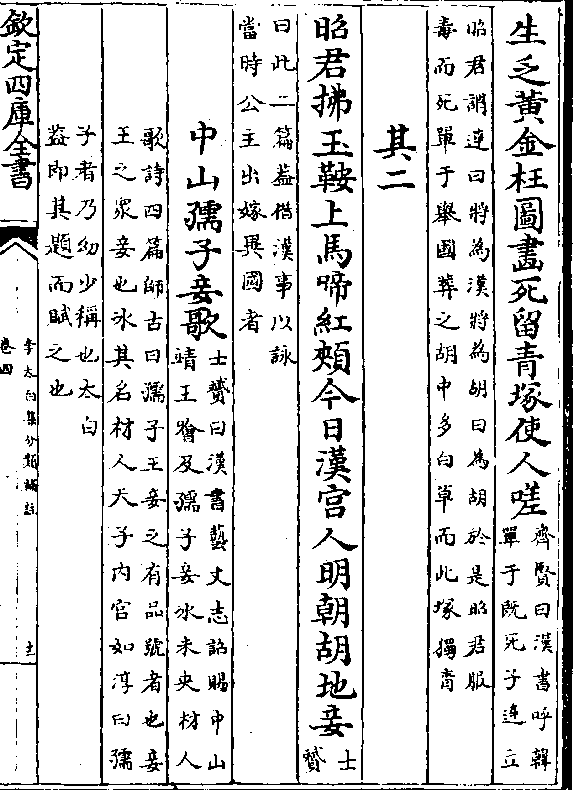 生乏黄金枉圖畫死留青塚使人嗟
齊賢曰漢書呼韓
單于既死子達立
昭君謂達曰將為漢將為胡曰為胡於是昭君服
毒而死單于舉國葬之胡中多白草而此塚獨青
其二
昭君拂玉鞍上馬啼紅頰今日漢宫人明朝胡地妾
士
贇
曰此二篇葢借漢事以詠
當時公主出嫁異國者
中山孺子妾歌
士贇曰漢書藝文志詔賜中山
靖王噲及孺子妾冰未央材人
歌詩四篇師古曰孺子王妾之有品號者也妾
王之衆妾也冰其名材人天子内官如淳曰孺
子者乃幼少稱也太白
葢即其題而賦之也
欽定四庫全書
李太白集分類補註
卷四